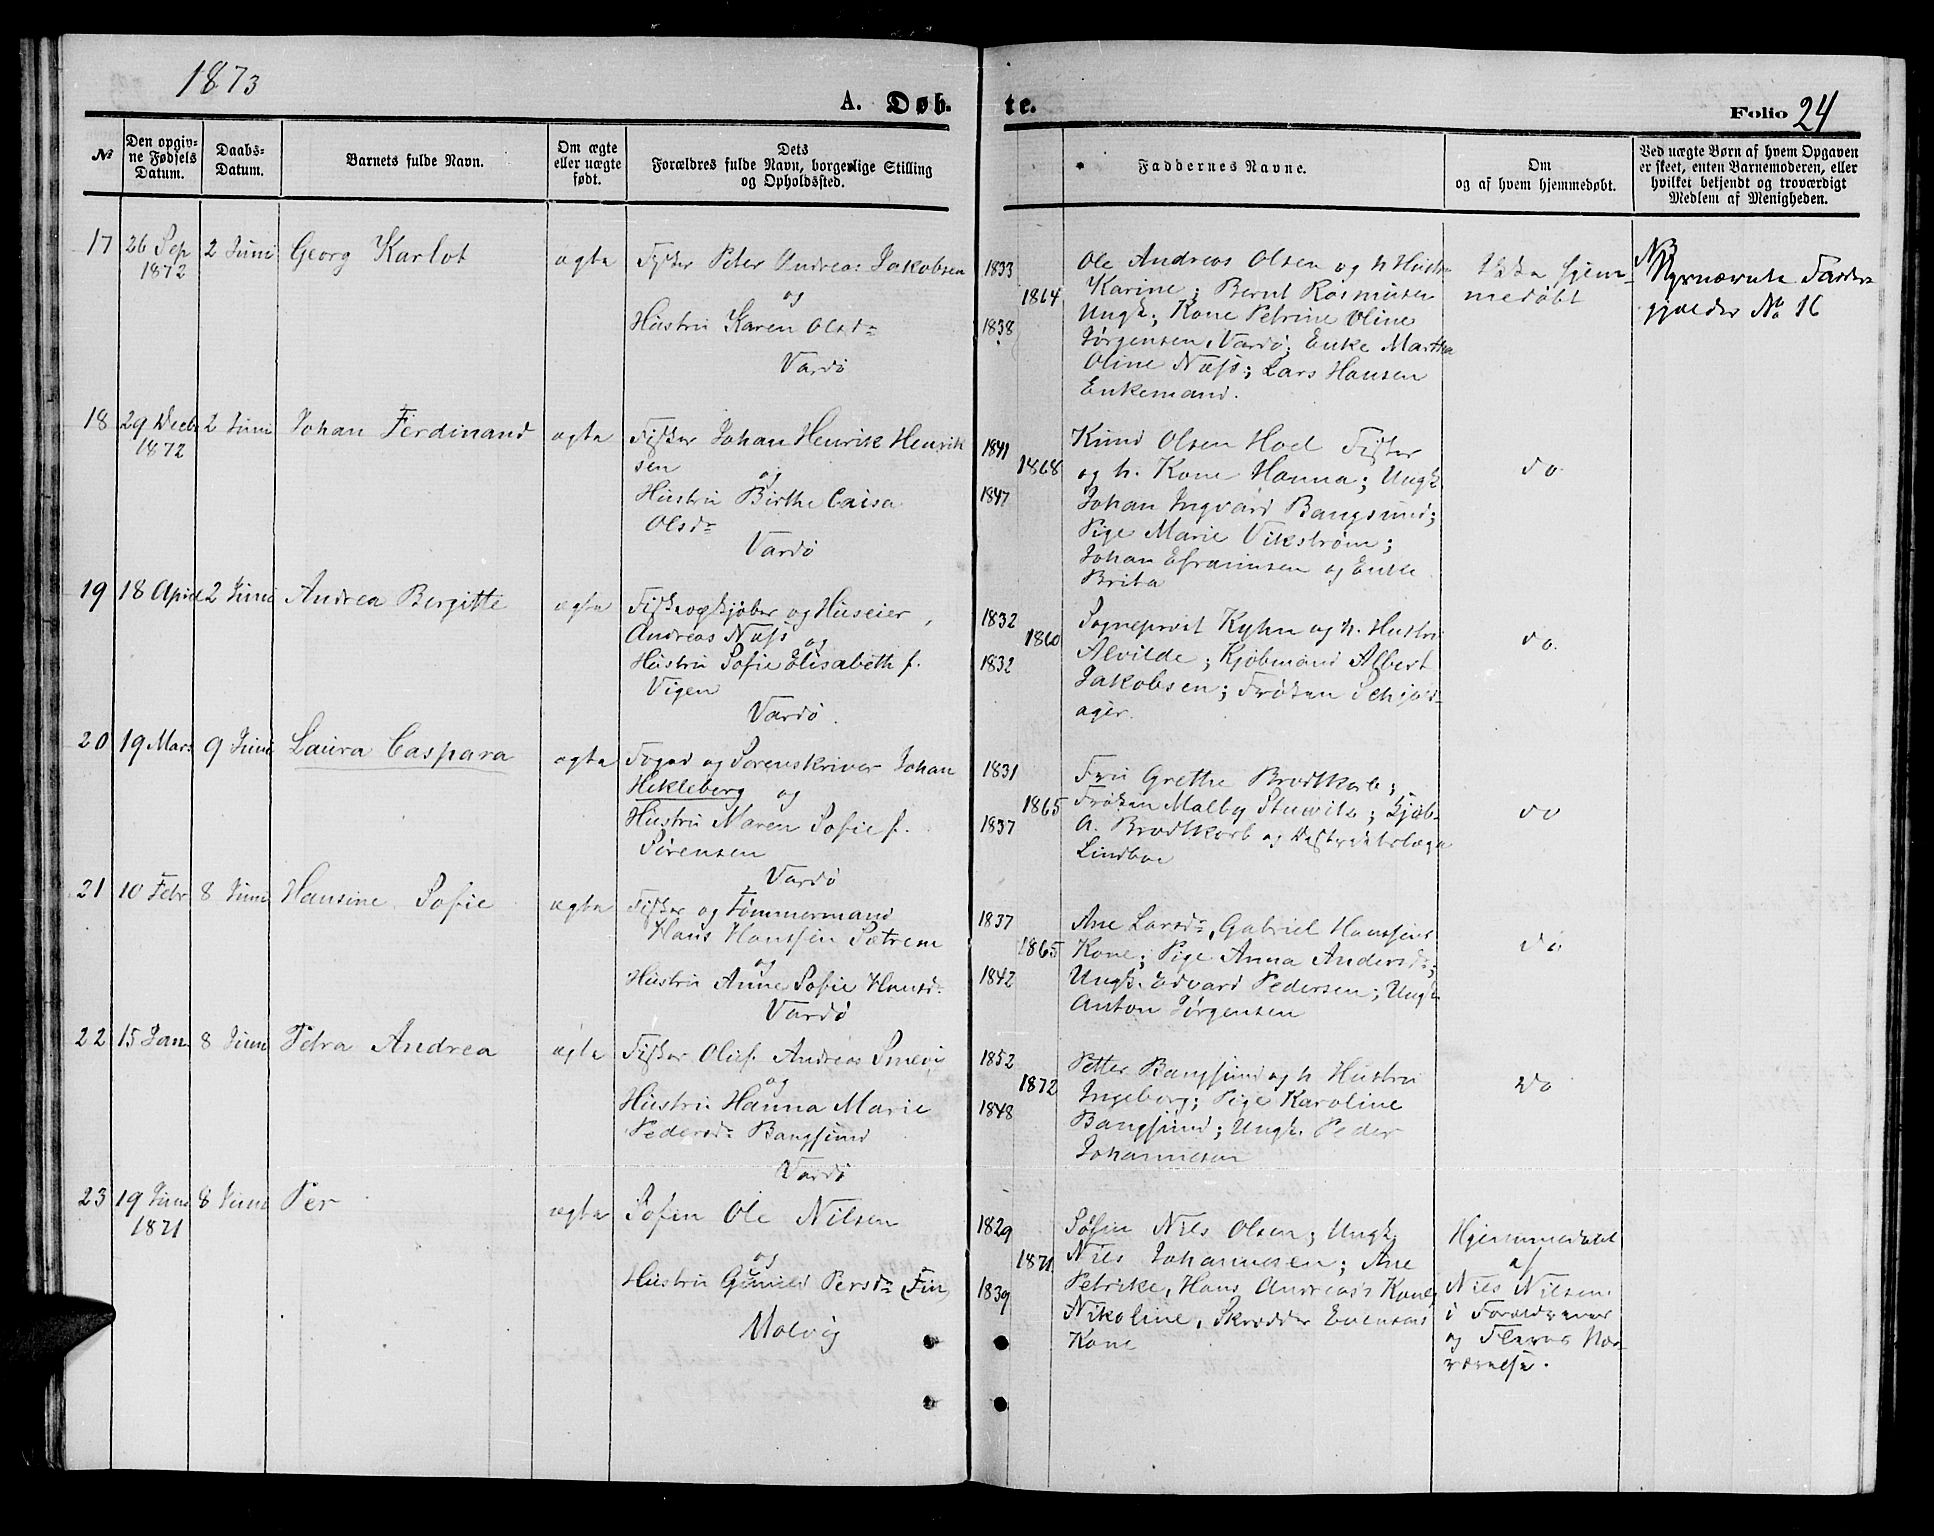 1873
A. Døb.
te.
Folio 24
№
Den opgiv-
ne Fødsels
Datum.
Daabs-
Datum.
Barnets fulde Navn.
Om ægte
eller uægte
født.
Dets
Forældres fulde Navn, borgerlige Stilling
og Opholdssted.
Faddernes Navne.
Om
og af hvem hjemmedøbt.
Ved uægte Børn af hvem Opgaven
er skeet, enten Barnemoderen, eller
hvilket bekjendt og troværdigt
Medlem af Menigheden.
17
26 Sep
1872
2 Juni
Georg Karlot
ægte
Fisker Peter Andreas Jakobsen
og
Hustru Karen Olsdr
Vardö
1833
1864
1838
Ole Andreas Olsen og h Hustru
Karine; Bernt Rasmusen
Ungk; Kone Petrine Oline
Jørgensen, Vardö; Enke Martha
Oline Næss; Lars Hansen
Enkemand.
Ikke hjem-
medøbt
NB
Faddere
gjælder No 16
18
29 Decb
1872
2 Juni
Johan Ferdinand
ægte
Fisker Johan Henrik Henrik
sen
og
Hustru Birthe Caisa
Olsdr
Vardö
1841
1868
1847
Knud Olsen Hoel Fisker
og h. Kone Hanna; Ungk
Johan Ingvard Bangsund;
Pige Marie Vikstrøm;
Johan Efraimsen og Enke
Brita
do
19
18 April
2 Juni
Andrea Bergitte
ægte
Fiskeopkjøber og Huseier,
Andreas Næss og
Hustru Sofie Elisabeth f.
Vigen
Vardö.
1832
1860
1832
Sogneprest Kyhn og h. Hustru
Alvilde; Kjøbmand Albert
Jakobsen; Frøken Schjøld-
ager.
do.
20
19 Mars
9 Juni
Laura Caspara
ægte
Foged og Sorenskriver Johan
Hekleberg og
Hustru Maren Sofie f.
Sørensen
Vardö
1831
1865
1837
Fru Grethe Brodtkorb;
Frøken Malby Stuwitz; Kjøb-
A. Brodtkorb og Distriktslæge
Lindboe
do
21
10 Febr
8 Juni
Hansine Sofie
ægte
Fisker og Tømmermand
Hans Hanssen Sætrem
og
Hustru Anne Sofie Hansd.
Vardö
1837
1865
1842
Ane Larsdr, Gabriel Hanssens
Kone; Pige Anna Andersdr;
Ungk. Edvard Pedersen; Ungk
Anton Jørgensen
do
22
15 Jan
8 Juni
Petra Andrea
ægte
Fisker Oluf Andreas Smevig
og
Hustru Hanna Marie
Pedersdr Bangsund
Vardö
1852
1872
1848
Petter Bangsund og h Hustru
Ingeborg; Pige Karoline
Bangsund; Ungk. Peder
Johannesen
do
23
19 Juni
1871
8 Juni
Per
ægte
Søfin Ole Nilsen
og
Hustru Gunild Persdr (Fin)
Molvig
1829
1871
1839
Søfin Nils Olsen; Ungk.
Nils Johannesen; Ane
Petrike, Hans Andreas's Kone;
Nikoline, Skrædder Evensens
Kone
Hjemmedøbt
af
Nils Nilsen
i Forældrenes
og Fleres Nær-
værelse.